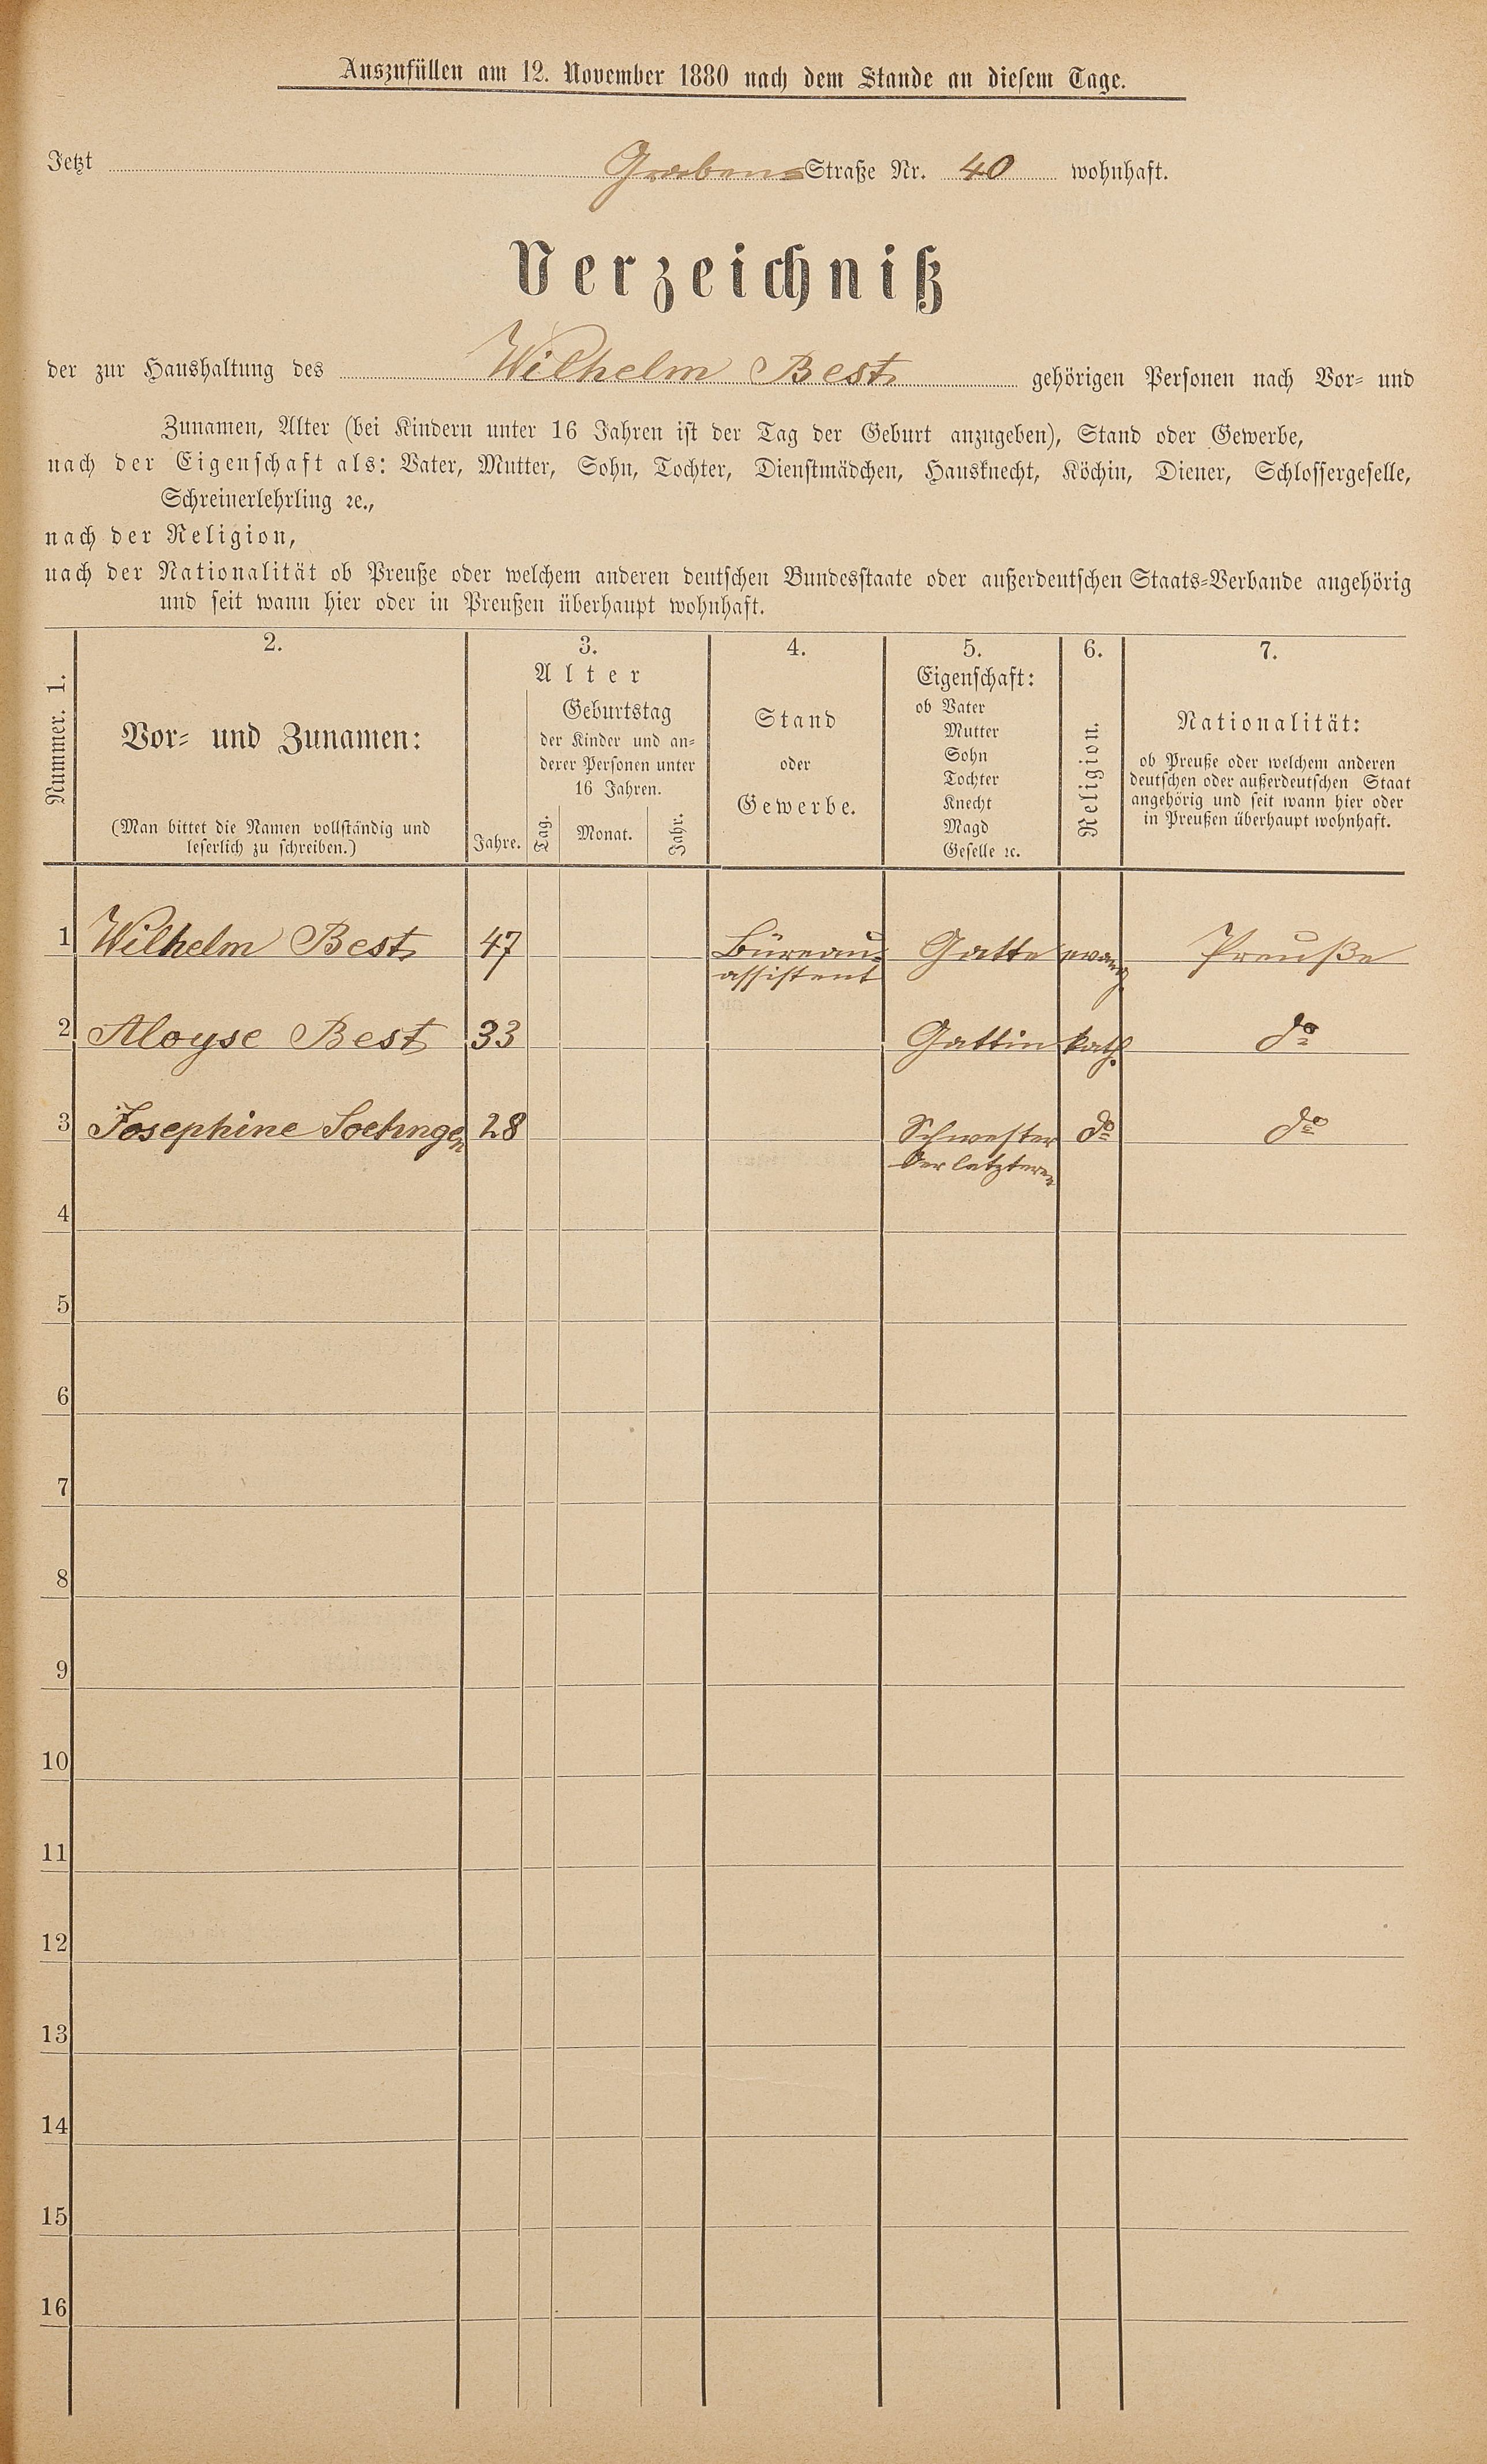 Auszufüllen am 12. November 1880 nach dem Stande an diesem Tage.
Jetzt Graben-Straße Nr. 40 wohnhaft.
Verzeichniß
der zur Haushaltung des Wilhelm Best gehörigen Personen nach Vor- und
Zunamen, Alter (bei Kindern unter 16 Jahren ist der Tag der Geburt anzugeben), Stand oder Gewerbe,
nach der Eigenschaft als: Vater, Mutter, Sohn, Tochter, Dienstmädchen, Hausknecht, Köchin, Diener, Schlossergeselle,
Schreinerlehrling ꝛc.,
nach der Religion,
nach der Nationalität ob Preuße oder welchem anderen deutschen Bundesstaate oder außerdeutschen Staats-Verbande angehörig
und seit wann hier oder in Preußen überhaupt wohnhaft.
Nummer. 1.
2.
Vor- und Zunamen:
(Man bittet die Namen vollständig und
leserlich zu schreiben.)
3.
Alter
Geburtstag
der Kinder und an-
derer Personen unter
16 Jahren.
Jahre. Tag. Monat. Jahr.
4.
Stand
oder
Gewerbe.
5.
Eigenschaft:
ob Vater
Mutter
Sohn
Tochter
Knecht
Magd
Geselle ꝛc.
6.
Religion.
7.
Nationalität:
ob Preuße oder welchem anderen
deutschen oder außerdeutschen Staat
angehörig und seit wann hier oder
in Preußen überhaupt wohnhaft.
1 Wilhelm Best 47 Büreau- Gatte evang Preuße
assistent
2 Aloyse Best 33 Gattin kath. do
3 Josephine Soehngen 28 Schwester do do
der letzteren
4
5
6
7
8
9
10
11
12
13
14
15
16